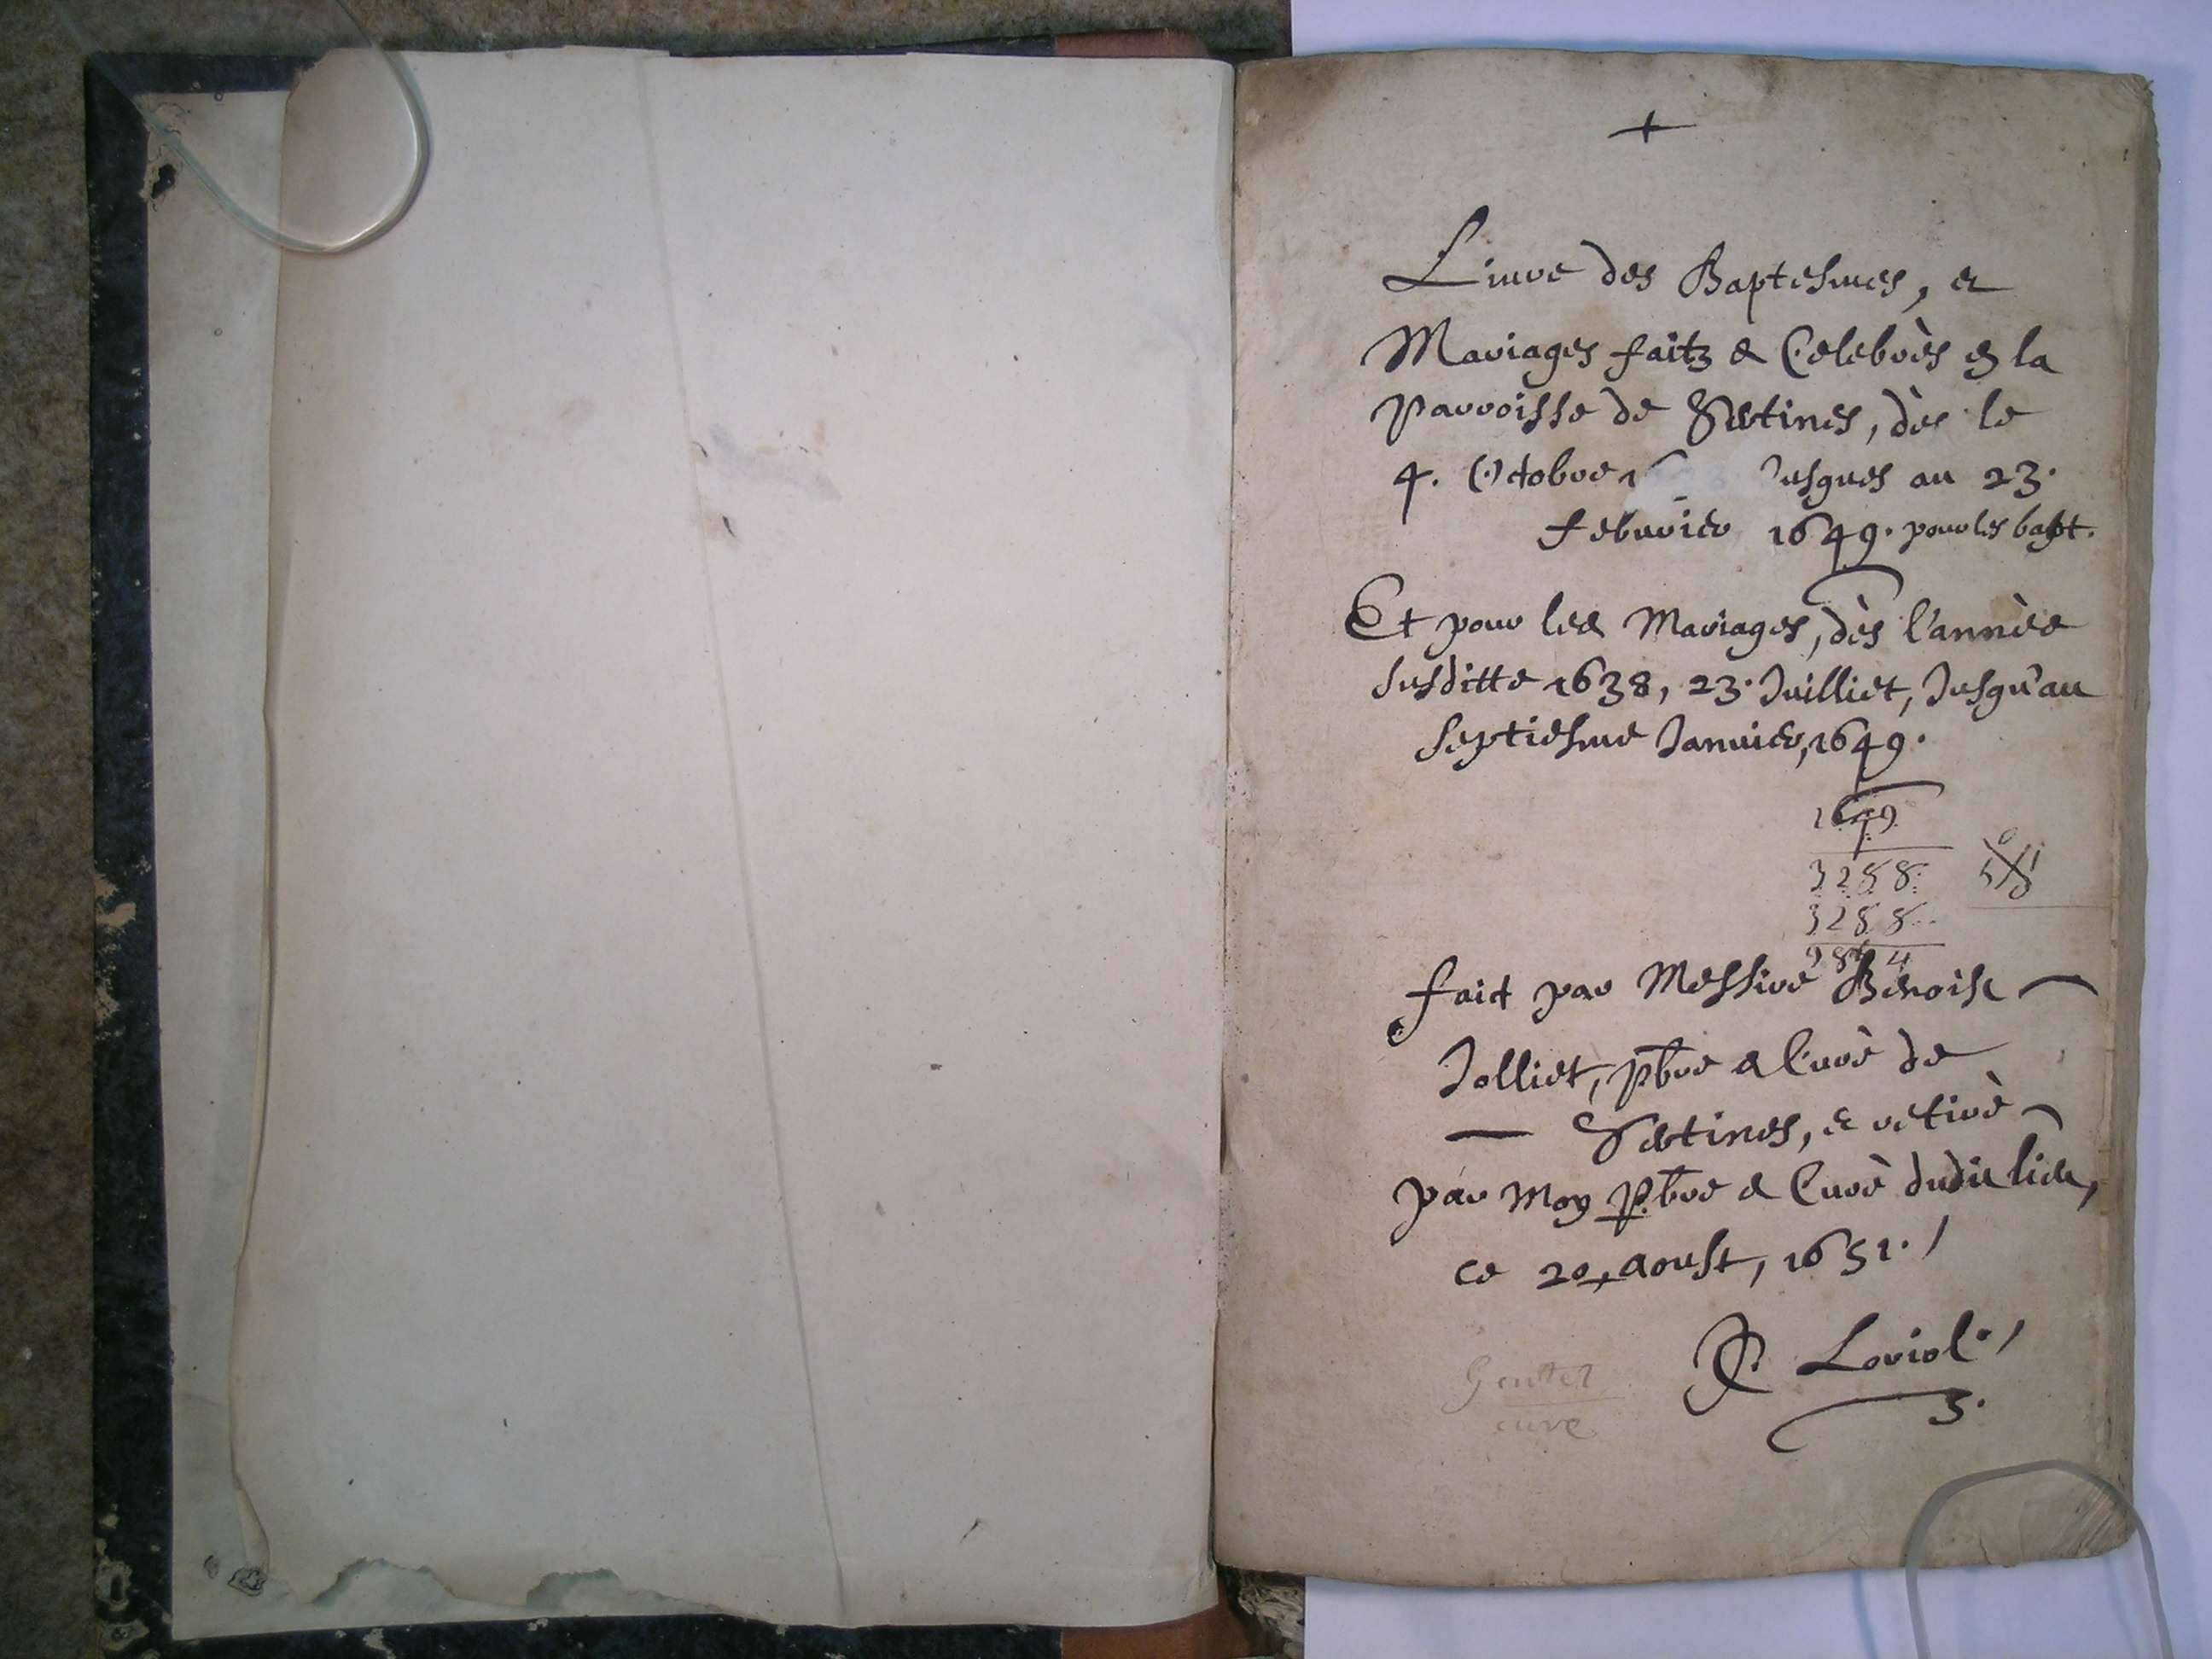 +
Liure des Baptesmes, et
Mariages faitz & Celebrès en la
parroisse de Gertines, dès le
4. Octobre 1 Jusques au 23.
febvrier 1649. pour les bapt.
Et pour les Mariages, dès l'annèe
susditte 1638, 23. Juilliet, Jusqu'au
septiesme Janvier, 1649.
1649
3288
3288
984 4
fait par Messire Benoist
Jolliet, pbre & Curè de
Gertines, & retirè
par Moy Pbre & Curè dudit lieu,
ce 20, aoust, 1651.
Loviol
cure